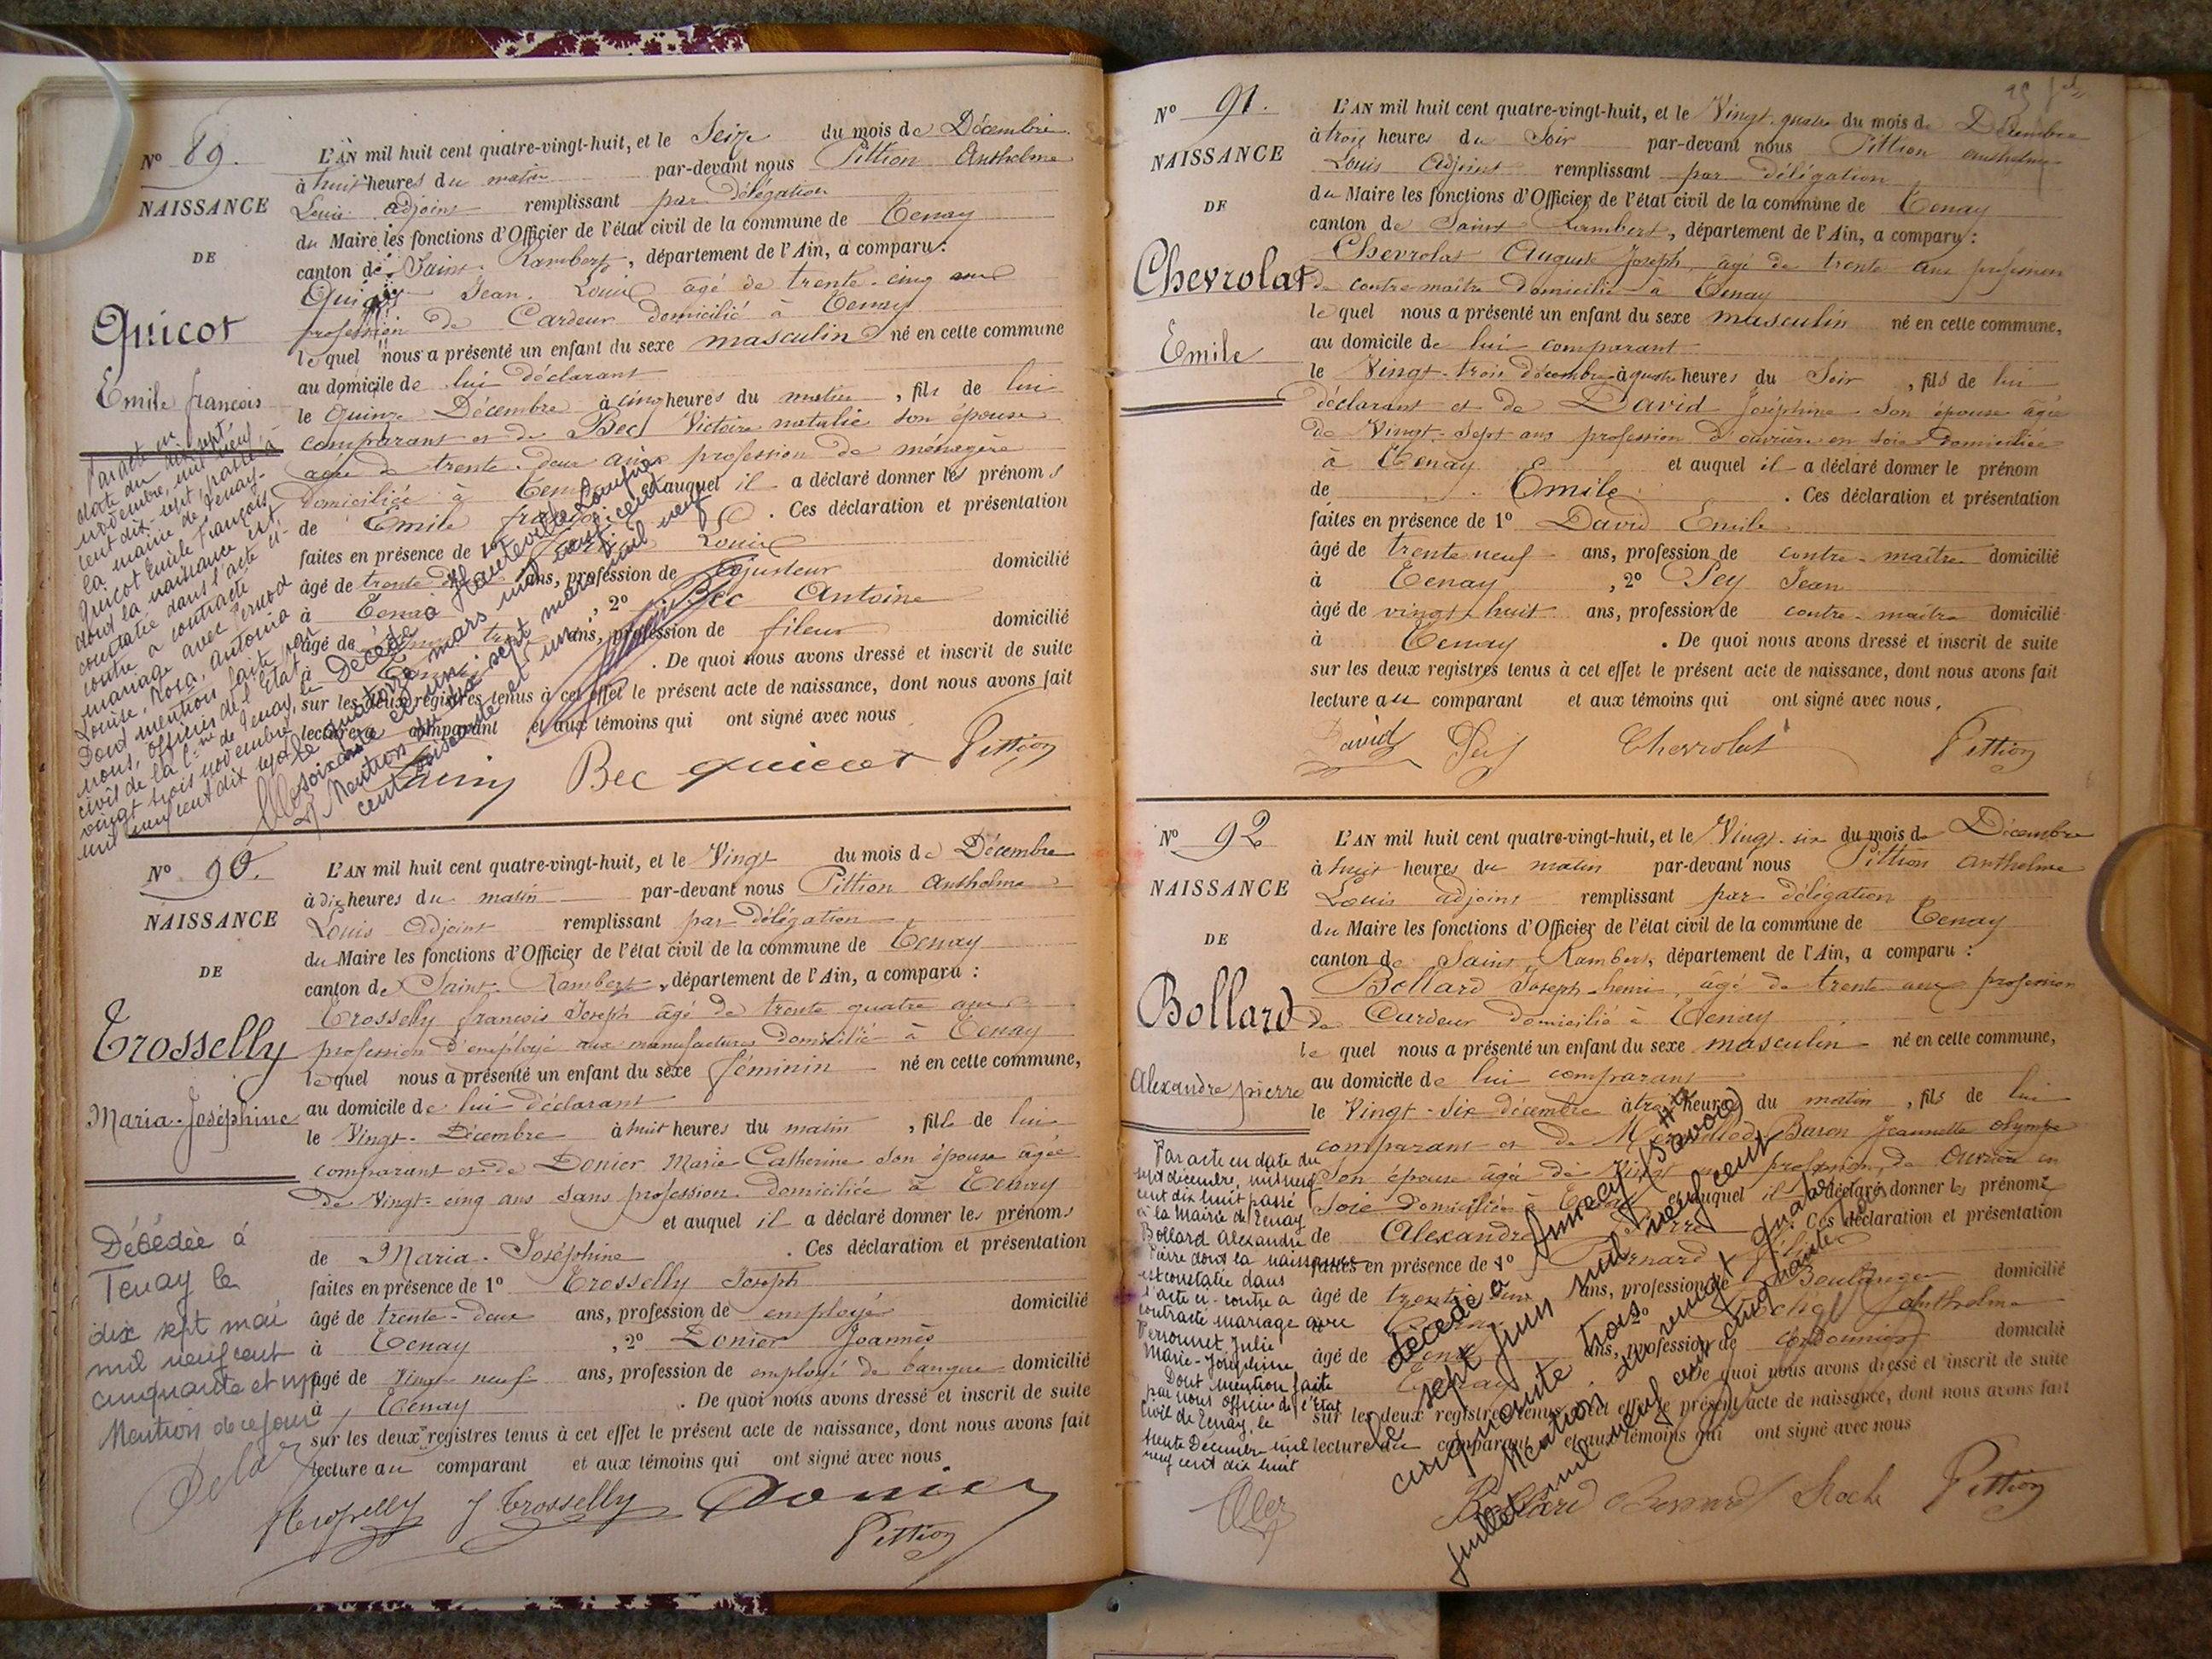 Nº 89.
NAISSANCE
DE
Quicot
Emile françois
Par acte en
date du dix sept
novembre, mil neuf
cent dix-sept, passé à
la mairie de Tenay-
Quicot Emile François
dont la naissance est
constatée dans l'acte ci-
contre a contracté
mariage avec
Louise, Rosa, Antonia
Dont mention faite par
nous, officier de l'Etat
civil de la Cne de Tenay, le
vingt trois novembre
mil neuf cent dix sept
L'AN mil huit cent quatre-vingt-huit, et le Seize du mois de Décembre
à huit heures du matin par-devant nous Pittion Anthelme
Louis adjoint remplissant par délégation
du Maire les fonctions d'Officier de l'état civil de la commune de Tenay
canton de Saint-Rambert, département de l'Ain, a comparu :
Quicot Jean-Louis âgé de trente-cinq ans
profession de Cardeur domicilié à Tenay
lequel nous a présenté un enfant du sexe masculin né en cette commune
au domicile de lui déclarant
le Quinze Décembre à cinq heures du matin, fils de lui
comparant et de Bec Victoire natalie son épouse
agée de trente-deux ans profession de ménagère
domiciliée à Tenay et auquel il a déclaré donner les prénoms
de Emile françois. Ces déclaration et présentation
faites en présence de 1º Louis
âgé de trente ans, profession de Ajusteur domicilié
à Tenay, 2º Bec Antoine
âgé de ans, profession de fileur domicilié
à Tenay. De quoi nous avons dressé et inscrit de suite
sur les deux registres tenus à cet effet le présent acte de naissance, dont nous avons fait
lecture au comparant et aux témoins qui ont signé avec nous
Décédé à Hauteville-Lompnes
le quatorze mars mil neuf cent
soixante et un.
Mention du dix sept mars mil neuf
cent soixante et un.
Bec Quicot Pittion
Nº 90.
NAISSANCE
DE
Trosselly
Maria-Joséphine
Décédée à
Tenay le
dix sept mai
mil neuf cent
cinquante et un
Mention de ce jour
L'AN mil huit cent quatre-vingt-huit, et le Vingt du mois de Décembre
à dix heures du matin par-devant nous Pittion Anthelme
Louis Adjoint remplissant par délégation
du Maire les fonctions d'Officier de l'état civil de la commune de Tenay
canton de Saint-Rambert, département de l'Ain, a comparu :
Trosselly françois Joseph âgé de trente quatre ans
profession d'employé aux manufactures Domicilié à Tenay
lequel nous a présenté un enfant du sexe féminin né en cette commune,
au domicile de lui déclarant
le Vingt-Décembre à huit heures du matin, fille de lui
comparant et de Donier Marie Catherine son épouse âgée
de Vingt-cinq ans sans profession domiciliée à Tenay
et auquel il a déclaré donner les prénoms
de Maria-Joséphine. Ces déclaration et présentation
faites en présence de 1º Trosselly Joseph
âgé de trente-deux ans, profession de employé domicilié
à Tenay, 2º Donier Joannès
âgé de Vingt neuf ans, profession de employé de banque domicilié
à Tenay. De quoi nous avons dressé et inscrit de suite
sur les deux registres tenus à cet effet le présent acte de naissance, dont nous avons fait
lecture au comparant et aux témoins qui ont signé avec nous
Trosselly J Trosselly Donier
Pittion
Nº 91.
NAISSANCE
DE
Chevrolat
Emile
L'AN mil huit cent quatre-vingt-huit, et le Vingt-quatre du mois de Décembre
à trois heures du Soir par-devant nous Pittion anthelme
Louis Adjoint remplissant par délégation
du Maire les fonctions d'Officier de l'état civil de la commune de Tenay
canton de Saint Rambert, département de l'Ain, a comparu :
Chevrolat Auguste Joseph, âgé de trente ans profession
de contremaître domicilié à Tenay
lequel nous a présenté un enfant du sexe masculin né en cette commune,
au domicile de lui comparant
le Vingt-trois décembre à quatre heures du Soir, fils de lui
déclarant et de David Joséphine son épouse âgée
de Vingt-Sept ans profession d'ouvrière en soie Domiciliée
à Tenay et auquel il a déclaré donner le prénom
de Emile. Ces déclaration et présentation
faites en présence de 1º David Emile
âgé de trente neuf ans, profession de contre-maître domicilié
à Tenay, 2º Pey Jean
âgé de vingt huit ans, profession de contre-maître domicilié
à Tenay. De quoi nous avons dressé et inscrit de suite
sur les deux registres tenus à cet effet le présent acte de naissance, dont nous avons fait
lecture au comparant et aux témoins qui ont signé avec nous.
David Pey Chevrolat Pittion
Nº 92
NAISSANCE
DE
Bollard
Alexandre pierre
Par acte en date du
sept décembre, mil neuf
cent dix huit passé
à la Mairie de Tenay
Bollard Alexandre
Pierre dont la naissance
est constatée dans
l'acte ci-contre a
contracté mariage avec
Perronnet Julie
Marie-Joséphine
Dont mention faite
par nous officier de l'Etat
Civil de Tenay, le
trente Décembre mil
neuf cent dix huit
L'AN mil huit cent quatre-vingt-huit, et le Vingt-six du mois de Décembre
à huit heures du matin par-devant nous Pittion Anthelme
Louis adjoint remplissant par délégation
du Maire les fonctions d'Officier de l'état civil de la commune de Tenay
canton de Saint Rambert, département de l'Ain, a comparu :
Bollard Joseph henri, âgé de trente ans profession
de Cardeur domicilié à Tenay
lequel nous a présenté un enfant du sexe masculin né en cette commune,
au domicile de lui comparant
le Vingt-six décembre à trois heures du matin, fils de lui
comparant et de Baron Jeannette olympe
son épouse âgée de Vingt ans profession de Ouvrière en
soie Domiciliée à Tenay et auquel il a déclaré donner les prénoms
de Alexandre Pierre. Ces déclaration et présentation
faites en présence de 1º
âgé de trente ans, profession de Boulanger domicilié
à Tenay 2º Anthelme
âgé de ans, profession de cordonnier domicilié
à Tenay. De quoi nous avons dressé et inscrit de suite
sur les deux registres tenus à cet effet le présent acte de naissance, dont nous avons fait
lecture au comparant et aux témoins qui ont signé avec nous
décédé à Annecy (Hte Savoie)
le sept juin mil neuf cent
cinquante trois.
Mention du vingt quatre
juillet mil neuf cent cinquante trois
Bollard Pittion